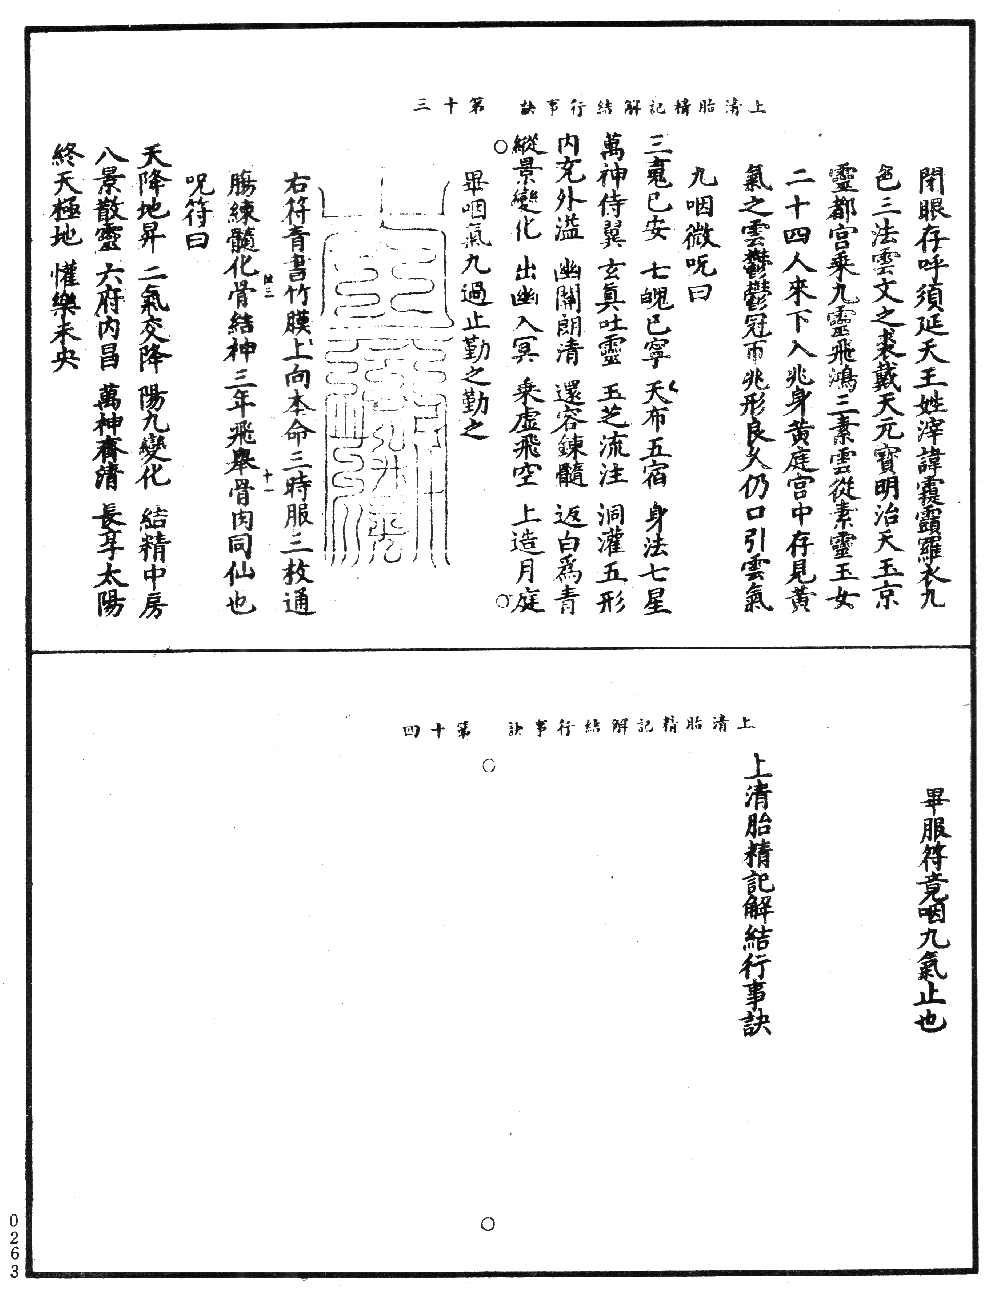 上清胎精記解結行事訣　第十三
閉眼存呼須延天王姓滓諱霐靇羅衣九
色三法雲文之裘戴天元寶明治天玉京
靈都宮乘九靈飛鴻三素雲從素靈玉女
二十四人來下入兆身黃庭宮中存見黃
氣之雲鬱鬱冠帀兆形良久仍口引雲氣
九咽微呪曰
三䰟已安　七魄已寧　天布五宿　身法七星
萬神侍翼　玄真吐靈　玉芝流注　洞灌五形
內充外溢　幽關朗清　還容鍊髓　返白為青
縱景變化　出幽入冥　乘虛飛空　上造月庭
畢咽氣九過止勤之勤之
右符青書竹膜上向本命三時服三枚通
腸練髓化骨結神三年飛舉骨肉同仙也
呪符曰
天降地昇　二氣交降　陽九變化　結精中房
八景散靈　六府內昌　萬神齊清　長享太陽
終天極地　懽樂未央
陡三
十一
上清胎精記解結行事訣　第十四
畢服符竟咽九氣止也
上清胎精記解結行事訣
0263